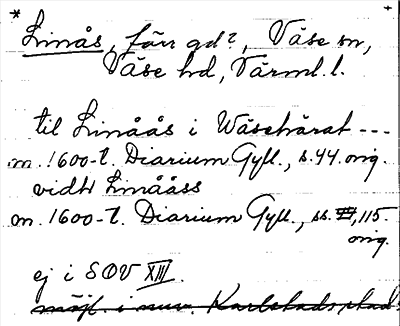 * Linås, förr gd?, Väse sn,
Väse hd, Värml. l.
til Linåås i Wäsehärat ---
m. 1600-t. Diarium Gyll., s. 44. orig.
vidh Linååss
m. 1600-t. Diarium Gyll., ss. 115.
orig.
ej i SOV XIII.
möjl. i nuv. Karlstads stad